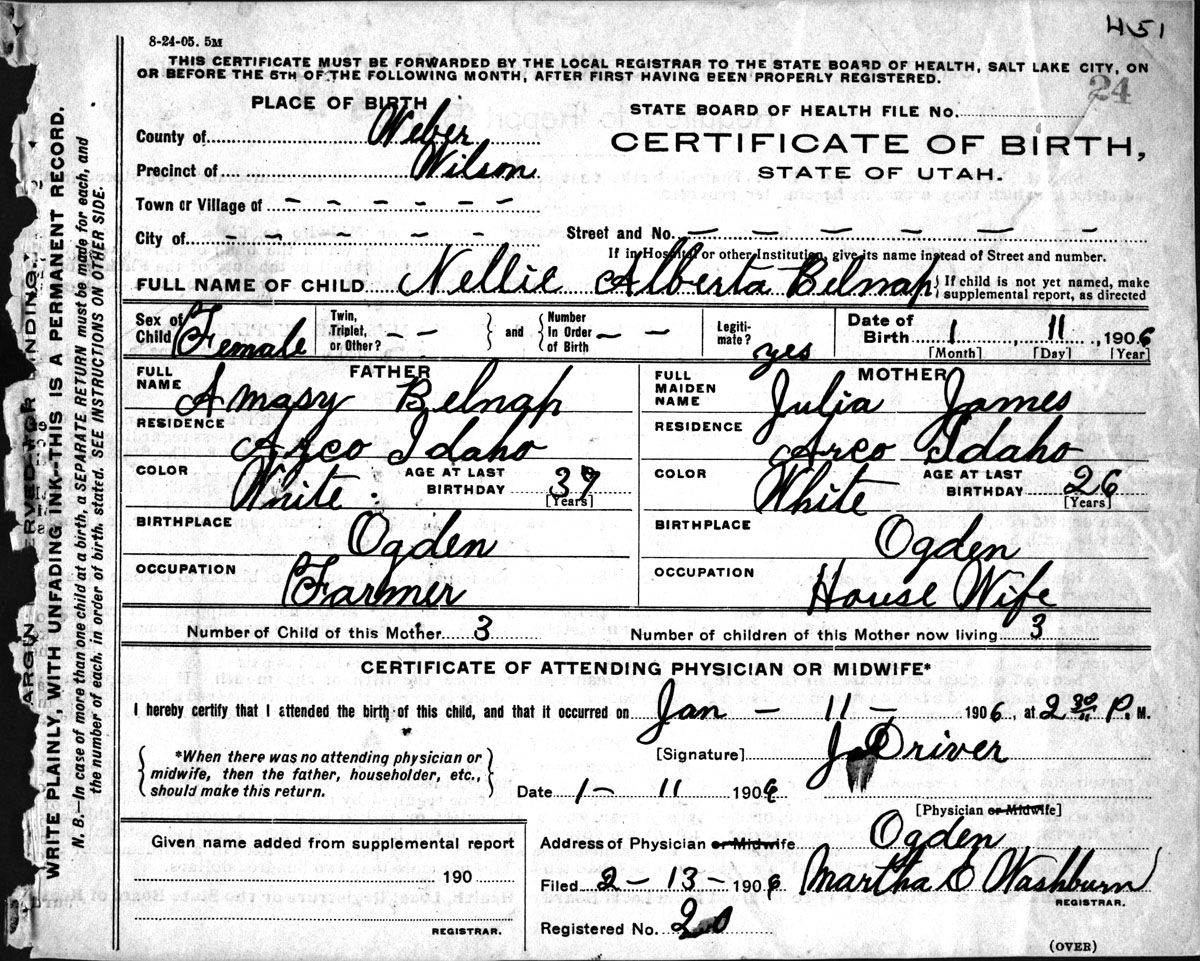 451
8-24-05. 5M
THIS CERTIFICATE MUST BE FORWARDED BY THE LOCAL REGISTRAR TO THE STATE BOARD OF HEALTH, SALT LAKE CITY, ON
OR BEFORE THE 5TH OF THE FOLLOWING MONTH, AFTER FIRST HAVING BEEN PROPERLY REGISTERED.
24
PLACE OF BIRTH
STATE BOARD OF HEALTH FILE No.
County of Weber
CERTIFICATE OF BIRTH,
Precinct of Wilson
STATE OF UTAH.
Town or Village of - - - - - -
City of - - - - - Street and No. - - - - - -
If in Hospital or other Institution, give its name instead of Street and number.
FULL NAME OF CHILD Nellie Alberta Belnap { If child is not yet named, make
supplemental report, as directed
Sex of Child Female
Twin, Triplet, or Other? - } and { Number In Order of Birth - -
Legitimate? yes
Date of Birth 1 11, 1906
[Month] [Day] [Year]
FATHER
FULL NAME Amasy Belnap
RESIDENCE Arco Idaho
COLOR White AGE AT LAST BIRTHDAY 37 [Years]
BIRTHPLACE Ogden
OCCUPATION Farmer
MOTHER
FULL MAIDEN NAME Julia James
RESIDENCE Arco Idaho
COLOR White AGE AT LAST BIRTHDAY 26 [Years]
BIRTHPLACE Ogden
OCCUPATION House Wife
Number of Child of this Mother 3 Number of children of this Mother now living 3
CERTIFICATE OF ATTENDING PHYSICIAN OR MIDWIFE*
I hereby certify that I attended the birth of this child, and that it occurred on Jan - 11 - 1906, at 2 30 P. M.
*When there was no attending physician or
midwife, then the father, householder, etc.,
should make this return.
[Signature] J Driver
Date 1 - 11 1906
[Physician or Midwife]
Address of Physician or Midwife Ogden
Given name added from supplemental report
190
REGISTRAR.
Filed 2 - 13 - 1906 Martha E Washburn
REGISTRAR.
Registered No. 20
(OVER)
WRITE PLAINLY, WITH UNFADING INK-THIS IS A PERMANENT RECORD.
N. B.—In case of more than one child at a birth, a SEPARATE RETURN must be made for each, and
the number of each, in order of birth, stated. SEE INSTRUCTIONS ON OTHER SIDE.